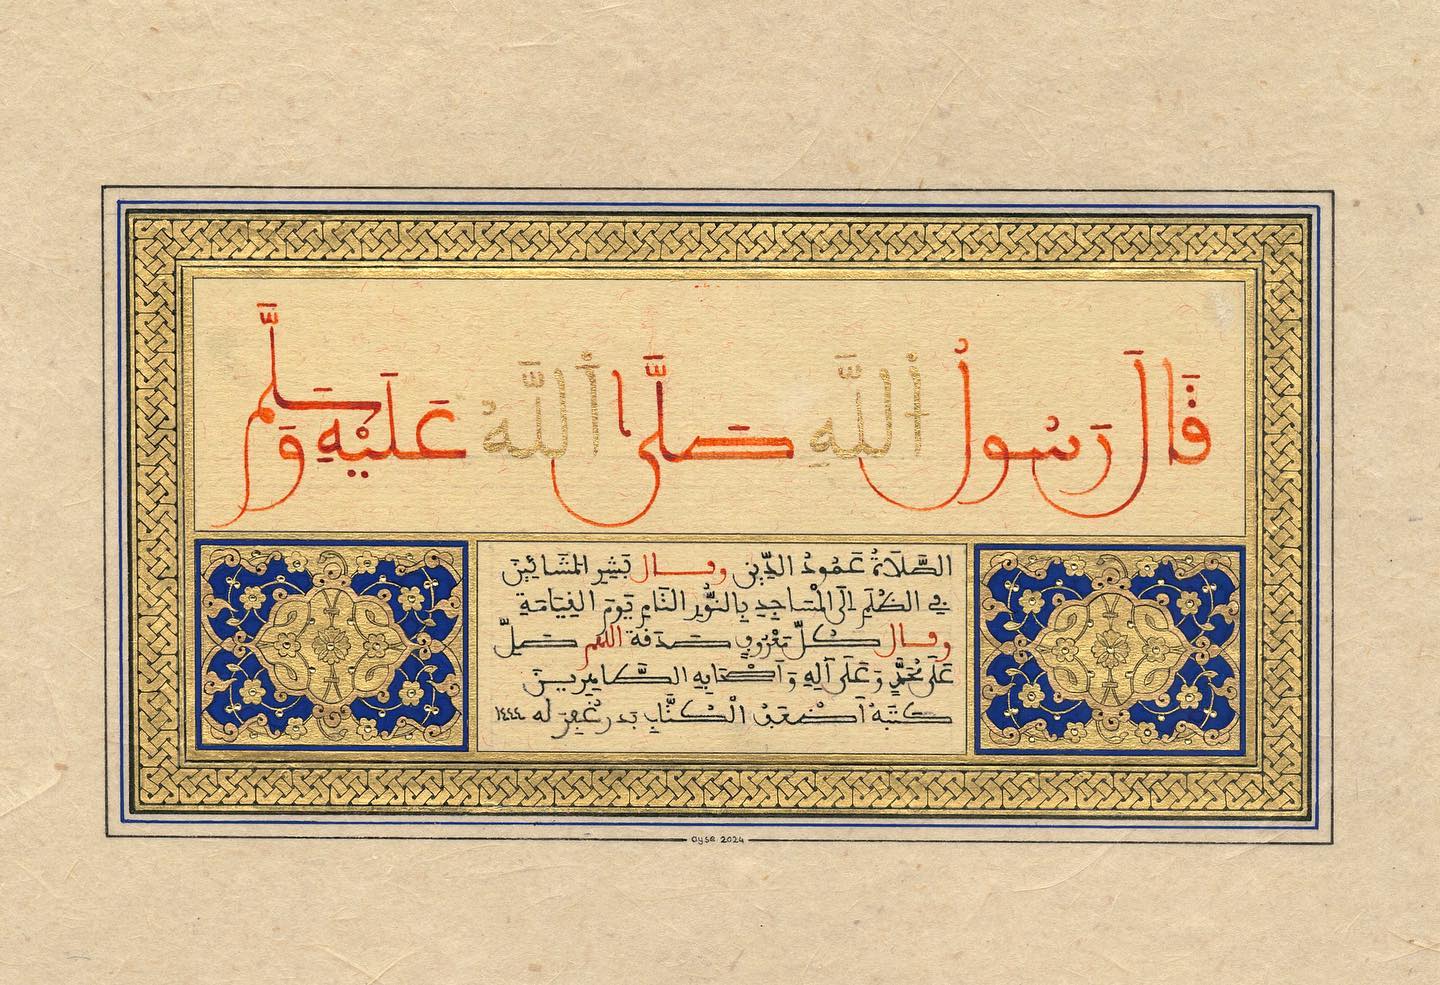 قَالَ رَسُولُ اللَّهِ صَلَّى اللَّهُ عَلَيْهِ وَسَلَّمَ
الصَّلَاةُ عَمُودُ الدِّينِ وقال بَشِّرِ المَشَّائِينَ
في الظُّلَمِ إلَى الْمَسَاجِدِ بِالنُّورِ التَّامِ يَوْمَ القِيَامَةِ
وقال كُلُّ مَعْرُوفٍ صَدَقَة اللهم صَلِّ
عَلَى مُحَمَّدٍ وَعَلَى آلِهِ وَأَصْحَابِهِ الطَّاهِرِينَ
كَتَبَهُ أَضْعَفُ الْكُتَّابِ بدر غُفِرَ له ١٤٤٤
ayşe 2024